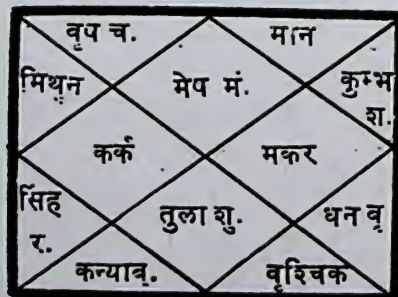 वृष च.
मीन
मिथुन
मेष मं.
कुम्भ
श.
कर्क
मकर
सिंह
र.
तुला शु.
धन वृ
कन्या बु.
वृश्चिक